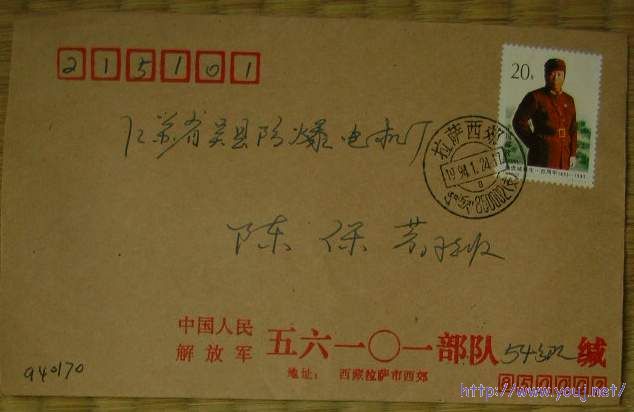 215101
20分
江苏省吴县防爆电机厂
拉萨西郊
1994.1.24.17
850002(支)
陈保芳 收
中国人民
解放军
五六一〇一部队 54分队 缄
地址： 西藏拉萨市西郊
940170
http://www.youj.net/